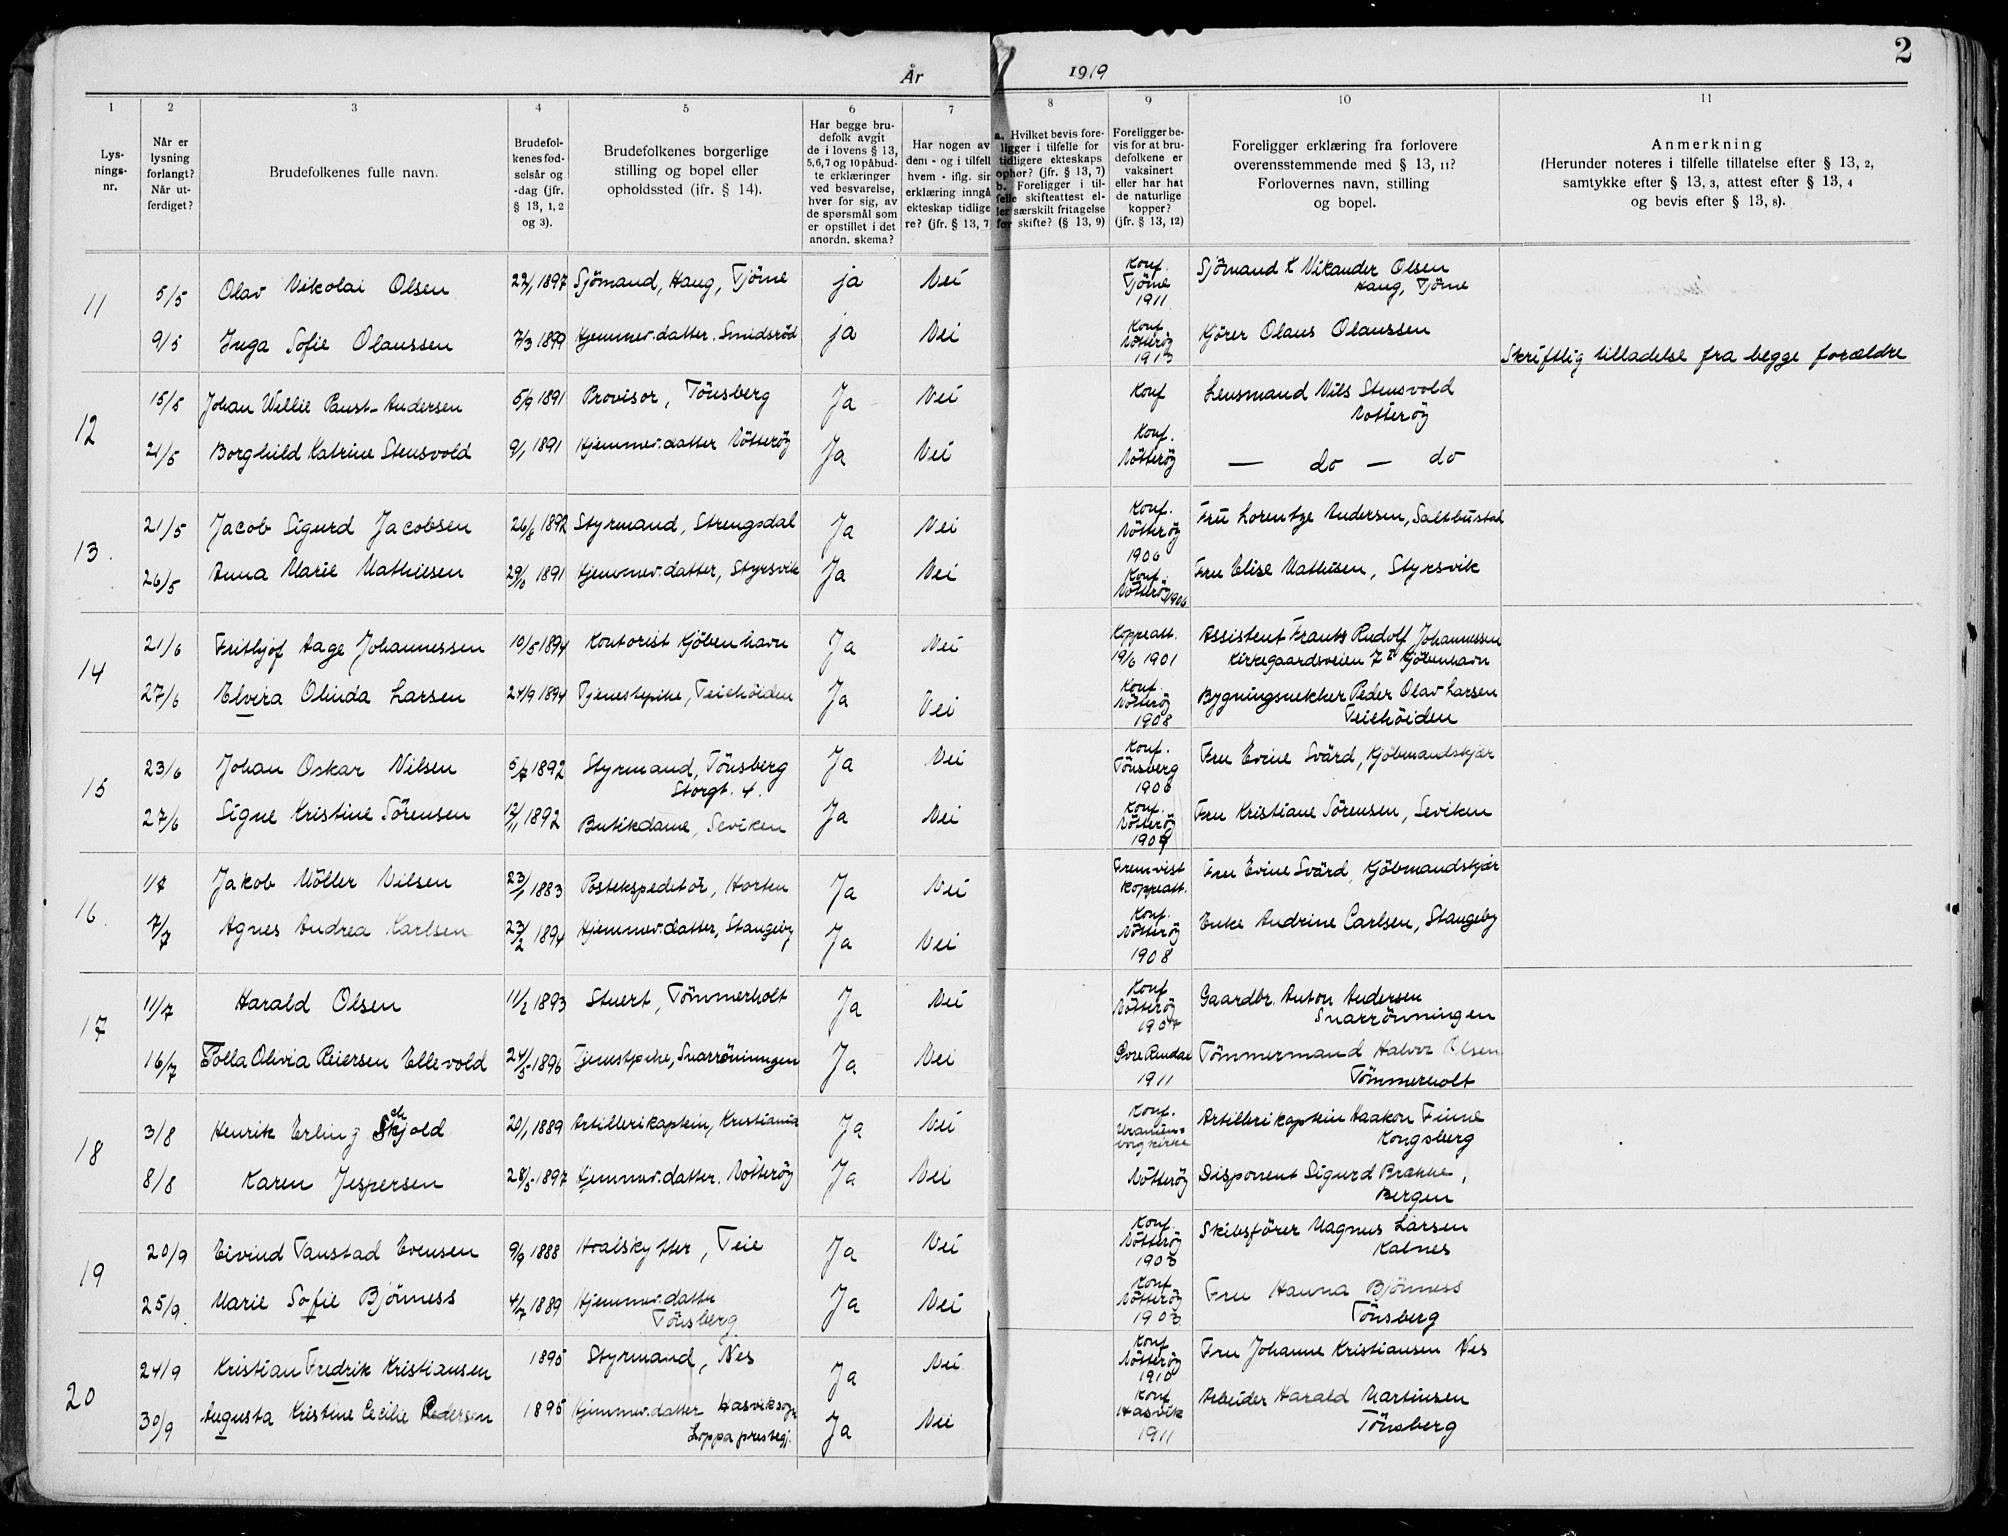 2
År 1919
1 2 3 4 5 6 7 8 9 10 11
Lys-
nings-
nr.
Når er
lysning
forlangt?
Når ut-
ferdiget?
Brudefolkenes fulle navn.
Brudefol-
kenes fød-
selsår og
-dag (jfr.
§ 13, 1, 2
og 3).
Brudefolkenes borgerlige
stilling og bopel eller
opholdssted (jfr. § 14).
Har begge bru-
defolk avgit
de i lovens § 13,
5, 6, 7 og 10 påbud-
te erklæringer
ved besvarelse,
hver for sig, av
de spørsmål som
er opstillet i det
anordn. skema?
Har nogen av
dem - og i tilfell
hvem - iflg. sin
erklæring inngå
ekteskap tidlige
re? (jfr. § 13, 7
a. Hvilket bevis fore-
ligger i tilfelle for
tidligere ekteskaps
ophør? (jfr. § 13, 7)
b. Foreligger i til-
felle skifteattest el-
ler særskilt fritagelse
for skifte? (§ 13, 9)
Foreligger be-
vis for at bru-
defolkene er
vaksinert
eller har hat
de naturlige
kopper?
(jfr. § 13, 12)
Foreligger erklæring fra forlovere
overensstemmende med § 13, 11?
Forlovernes navn, stilling
og bopel.
Anmerkning
(Herunder noteres i tilfelle tillatelse efter § 13, 2,
samtykke efter § 13, 3, attest efter § 13, 4
og bevis efter § 13, 8).
11 5/5 Olav Nikolai Olsen 22/1 1897 Sjömand, Haug, Tjöme ja Nei Konf. Tjöme 1911 Sjömand K Nikander Olsen
Haug, Tjöme
9/5 Inga Sofie Olaussen 7/3 1899 Hjemmev. datter. Smidsröd ja Nei Konf. Nötteröy 1913 Kjörer Olaus Olaussen
Skriftlig tilladelse fra begge forældre
12 15/5 Johan Willie Paust-Andersen 5/9 1891 Provisor, Tönsberg Ja Nei Konf Lensmand Nils Stensvold
Nötteröy
21/5 Borghild Katrine Stensvold 9/1 1891 Hjemmev. datter Nötteröy Ja Nei Konf. Nötteröy — do — do
13. 21/5 Jacob Sigurd Jacobsen 26/8 1892 Styrmand, Strengsdal Ja Nei Konf. Nötteröy 1906 Fru Lorentze Andersen, Saltbustad
26/5 Anna Marie Mathisen 29/10 1891 Hjemmev. datter, Styrsvik Ja Nei Konf. Nötteröy 1906 Fru Elise Mathisen, Styrsvik
14 21/6 Frithjof Aage Johannessen 10/5 1894 Kontorist Kjöbenhavn Ja Nei Koppeatt. 19/6 1901 Assistent Frantz Rudolf Johannessen
Kirkegaardsveien 7 Kjöbenhavn
27/6 Elvera Olinda Larsen 24/9 1894 Tjenestepike, Teiehöiden Ja Nei Konf. Nötteröy 1908 Bygningssnekker Peder Olav Larsen
Teiehöiden
15 23/6 Johan Oskar Nilsen 5/7 1892 Styrmand, Tönsberg
Storgt. 4. Ja Nei Konf. Tönsberg 1906 Fru Evine Svärd, Kjöbmandskjær
27/6 Signe Kristine Sörensen 12/11 1892 Butikdame, Seviken Ja Nei Konf. Nötteröy 1907 Fru Kristiane Sörensen, Seviken
16. 1/7 Jakob Möller Nilsen 23/1 1883 Postekspeditör, Horten Ja Nei Fremvist koppeatt. Fru Evine Svärd, Kjöbmandskjær
7/7 Agnes Andrea Karlsen 23/2 1894 Hjemmev. datter, Stangeby Ja Nei Konf. Nötteröy 1908 Enke Andrine Carlsen, Stangeby
17 11/7 Harald Olsen 11/2 1893 Stuert, Tömmerholt Ja Nei Konf Nötteröy 1907 Gaardbr. Anton Andersen
Snarrövningen
16/7 Tolla Olivia Reiersen Ellevold 24/5 1896 Tjenestpike, Snarröningen Ja Nei Övre Rendal 1911 Tömmermand Halvor Olsen
Tömmerholt
18 3/8 Henrik Erling Schjold 20/1 1889 Artillerikaptein, Kristiania Ja Nei Konf. Uraniens-
borg kirke Artillerikaptein Haakon Finne
Kongsberg
8/8 Karen Jespersen 28/5 1897 Hjemmev. datter. Nötteröy Ja Nei Nötteröy Disponent Sigurd Brække,
Bergen
19 20/9 Eivind Tanstad Evensen 9/9 1888 Hvalskytter, Teie Ja Nei Konf. Nötteröy 1903 Skibsförer Magnus Larsen
Kalnes
25/9 Marie Sofie Björness 4/7 1889 Hjemmev. datter
Tönsberg Ja Nei Konf Nötteröy 1903 Fru Hanna Björness
Tönsberg
20 24/9 Kristian Fredrik Kristiansen 1895 Styrmand, Nes Ja Nei Konf Nötteröy 1910 Fru Johanne Kristiansen Nes
30/9 Augusta Kristine Cecilie Pedersen 1895 Hjemmev. datter Hasviksogn
Loppa prestegj. Ja Nei Konf Hasvik 1911 Arbeider Harald Martinsen
Tönsberg